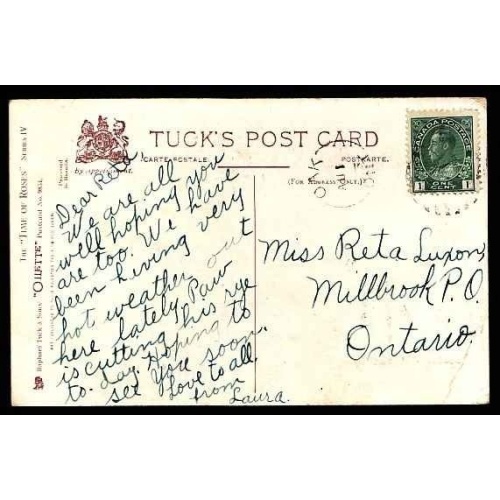 TUCK'S POST CARD
CARTE POSTALE
POSTKARTE.
by Appointment.
(FOR ADDRESS ONLY.)
CANADA POSTAGE
1 ONE CENT 1
OAK
JUL
THE "TIME OF ROSES" SERIES IV
Raphael Tuck & Sons' "OILETTE" Postcard No.
Dear Reta,
We are all
well hoping you
are too. We have
been having very
hot weather out
here lately. Paw
is cutting his rye
to-day. Hoping to
see you soon.
Love to all,
from
Laura.
Miss Reta Luxon,
Millbrook P.O.
Ontario.